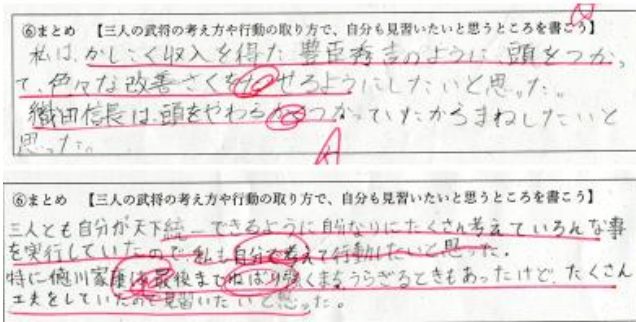 ⑥まとめ 【三人の武将の考え方や行動の取り方で、自分も見習いたいと思うところを書こう】
私は、かしこく収入を得た豊臣秀吉のように、頭をつかっ
て、色々な改善さくを出せるようにしたいと思った。
織田信長は、頭をやわらかくつかっていたからまねしたいと
思った。
A
⑥まとめ 【三人の武将の考え方や行動の取り方で、自分も見習いたいと思うところを書こう】
三人とも自分が天下統一できるように自分なりにたくさん考えていろんな事
を実行していたので、私も自分で考えて行動したいと思った。
特に徳川家康は最後までねばり強くまちうらぎるときもあったけど、たくさん
工夫をしていたので見習いたいと思った。